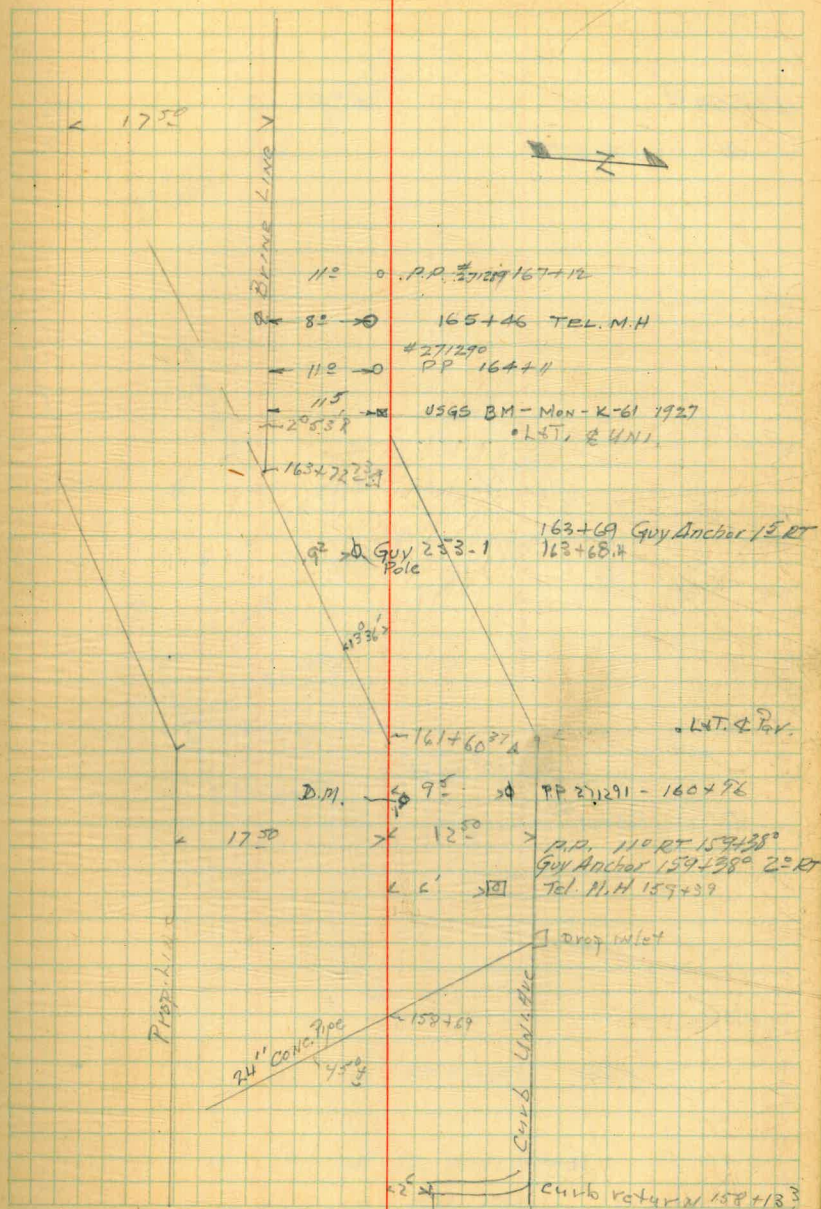 17 50
N
BRINE LINE
11º P.P. #271289 167+12
8º 165+46 TEL. M.H
#271290
11º PP 164+11
11 5 USGS BM - MON - K-61 1927
2º53' R
• L&T. ℄ UNI.
163+72
163+69 Guy Anchor 15 RT
9² Guy 253-1 163+68.4
Pole
13º36'
161+60 37 A
• L&T. ℄ Pav.
D.M. 9 5 PP 271291 - 160+96
17 50 12 50
P.P. 11º RT 159+38º
Guy Anchor 159+38º 2º RT
6' Tel. M.H 159+39
Drop inlet
Prop. LINE
158+69
24" CONC. Pipe
45º
Curb UNI. AVE
curb return 158+13 3